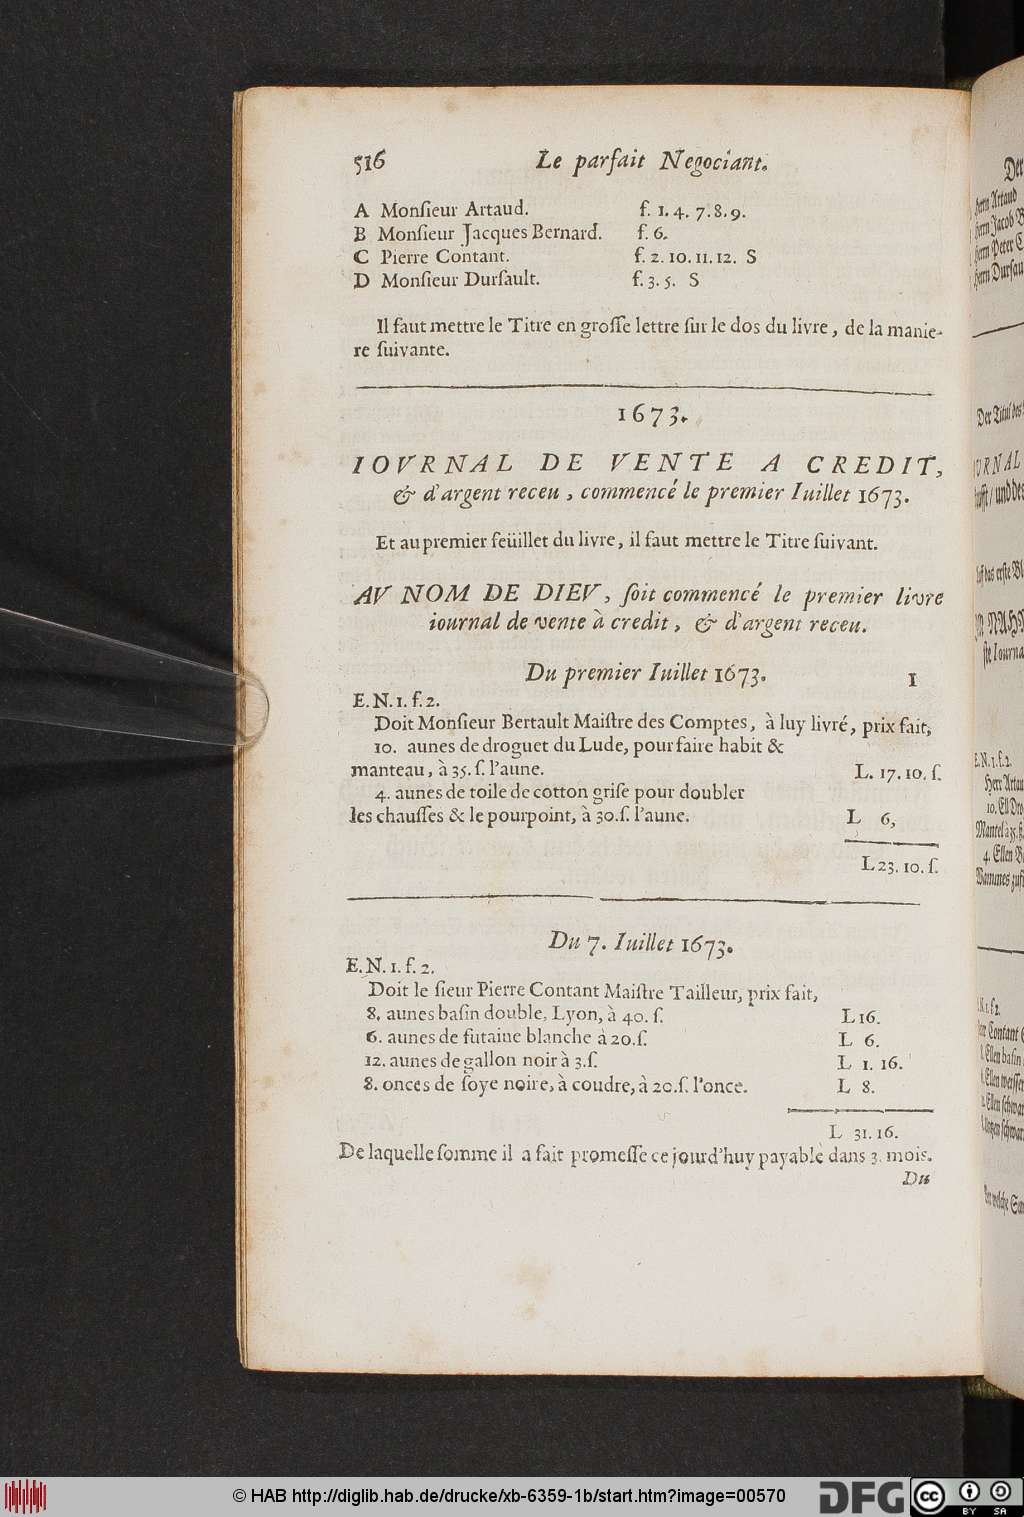 516 Le parfait Negociant.
A Monſieur Artaud. f. 1. 4. 7. 8. 9.
B Monſieur Jacques Bernard. f. 6.
C Pierre Contant. f. 2. 10. 11. 12. S
D Monſieur Durſault. f. 3. 5. S
Il faut mettre le Titre en groſſe lettre ſur le dos du livre, de la manie-
re ſuivante.
1673.
IOVRNAL DE VENTE A CREDIT,
& d'argent receu, commencé le premier Iuillet 1673.
Et au premier feüillet du livre, il faut mettre le Titre ſuivant.
AV NOM DE DIEV, ſoit commencé le premier livre
iournal de vente à credit, & d'argent receu.
Du premier Iuillet 1673. 1
E. N. 1. f. 2.
Doit Monſieur Bertault Maiſtre des Comptes, à luy livré, prix fait,
10. aunes de droguet du Lude, pour faire habit &
manteau, à 35. ſ. l'aune. L. 17. 10. ſ.
4. aunes de toile de cotton griſe pour doubler
les chauſſes & le pourpoint, à 30. ſ. l'aune. L 6,
L 23. 10. ſ.
Du 7. Iuillet 1673.
E. N. 1. f. 2.
Doit le ſieur Pierre Contant Maiſtre Tailleur, prix fait,
8. aunes baſin double, Lyon, à 40. ſ. L 16.
6. aunes de futaine blanche à 20. ſ. L 6.
12. aunes de gallon noir à 3. ſ. L 1. 16.
8. onces de ſoye noire, à coudre, à 20. ſ. l'once. L 8.
L 31. 16.
De laquelle ſomme il a fait promeſſe ce jourd'huy payable dans 3. mois.
Du
© HAB http://diglib.hab.de/drucke/xb-6359-1b/start.htm?image=00570
DFG cc BY SA